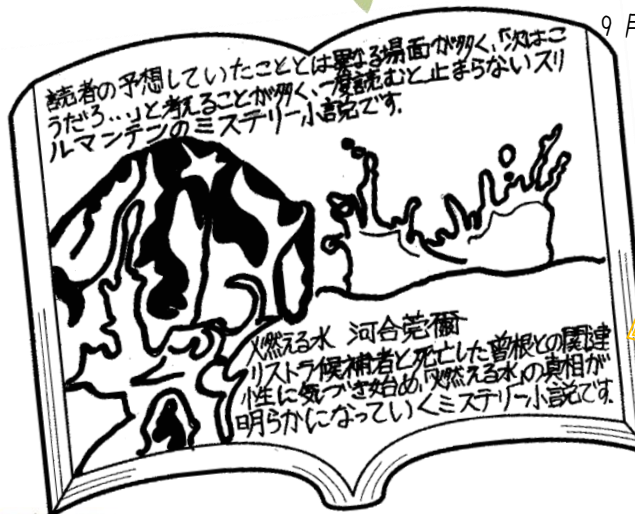 9月
読者の予想していたこととは異なる場面が多く、「次はこ
うだろ…」と考えることが多く、一度読むと止まらないスリ
ルマンテンのミステリー小説です.
燃える水 河合莞爾
リストラ候補者と死亡した曽根との関連
性に気づき始め、「燃える水」の真相が
明らかになっていくミステリー小説です.